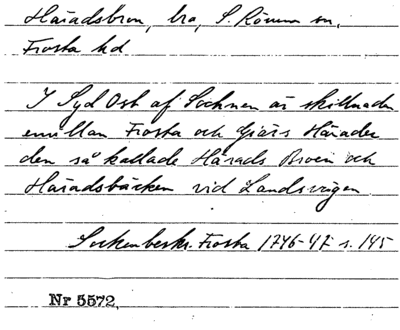 Häradsbron, bro, S Rörum sn,
Frosta hd
I Syd Ost af Socknen är skillnaden
emellan Frosta och Giärs Härader
den så kallade Härads Broen och
Häradsbäcken vid Landsvägen
Sockenbeskr. Frosta 1746-47 s. 145
Nr 5572.